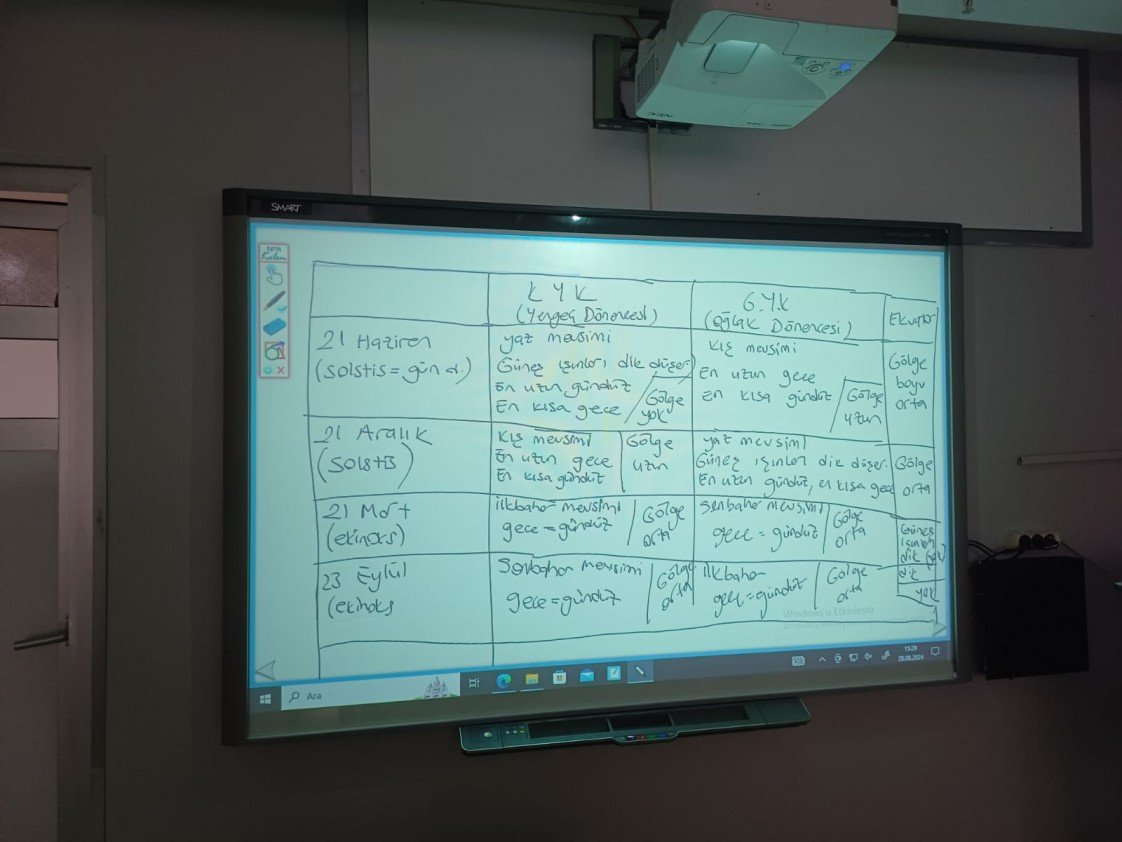 NEC
SMART
Kalem
K Y K
(Yengeç Dönencesi)
G.Y.K
(Oğlak Dönencesi)
Ekvator
21 Haziren
(solstis = gün d.)
yaz mevsimi
Güneş ışınları dik düşer.
En uzun gündüz
En kısa gece
Gölge
yok
Kış mevsimi
En uzun gece
En kısa gündüz
Gölge
uzun
Gölge
boyu
orta
21 Aralık
(Solstis)
Kış mevsimi
En uzun gece
En kısa gündüz
Gölge
uzun
yaz mevsimi
Güneş ışınları dik düşer.
En uzun gündüz, en kısa gece
Gölge
orta
21 Mart
(ekinoks)
ilkbahar mevsimi
gece = gündüz
Gölge
orta
Sonbahar mevsimi
gece = gündüz
Gölge
orta
Güneş
ışınları
dik
23 Eylül
(ekinoks
Sonbahar mevsimi
gece = gündüz
Gölge
orta
ilkbahar
gece = gündüz
Gölge
orta
dik
yok
Windows'u Etkinleştir
Ara
13:29
28.08.2024